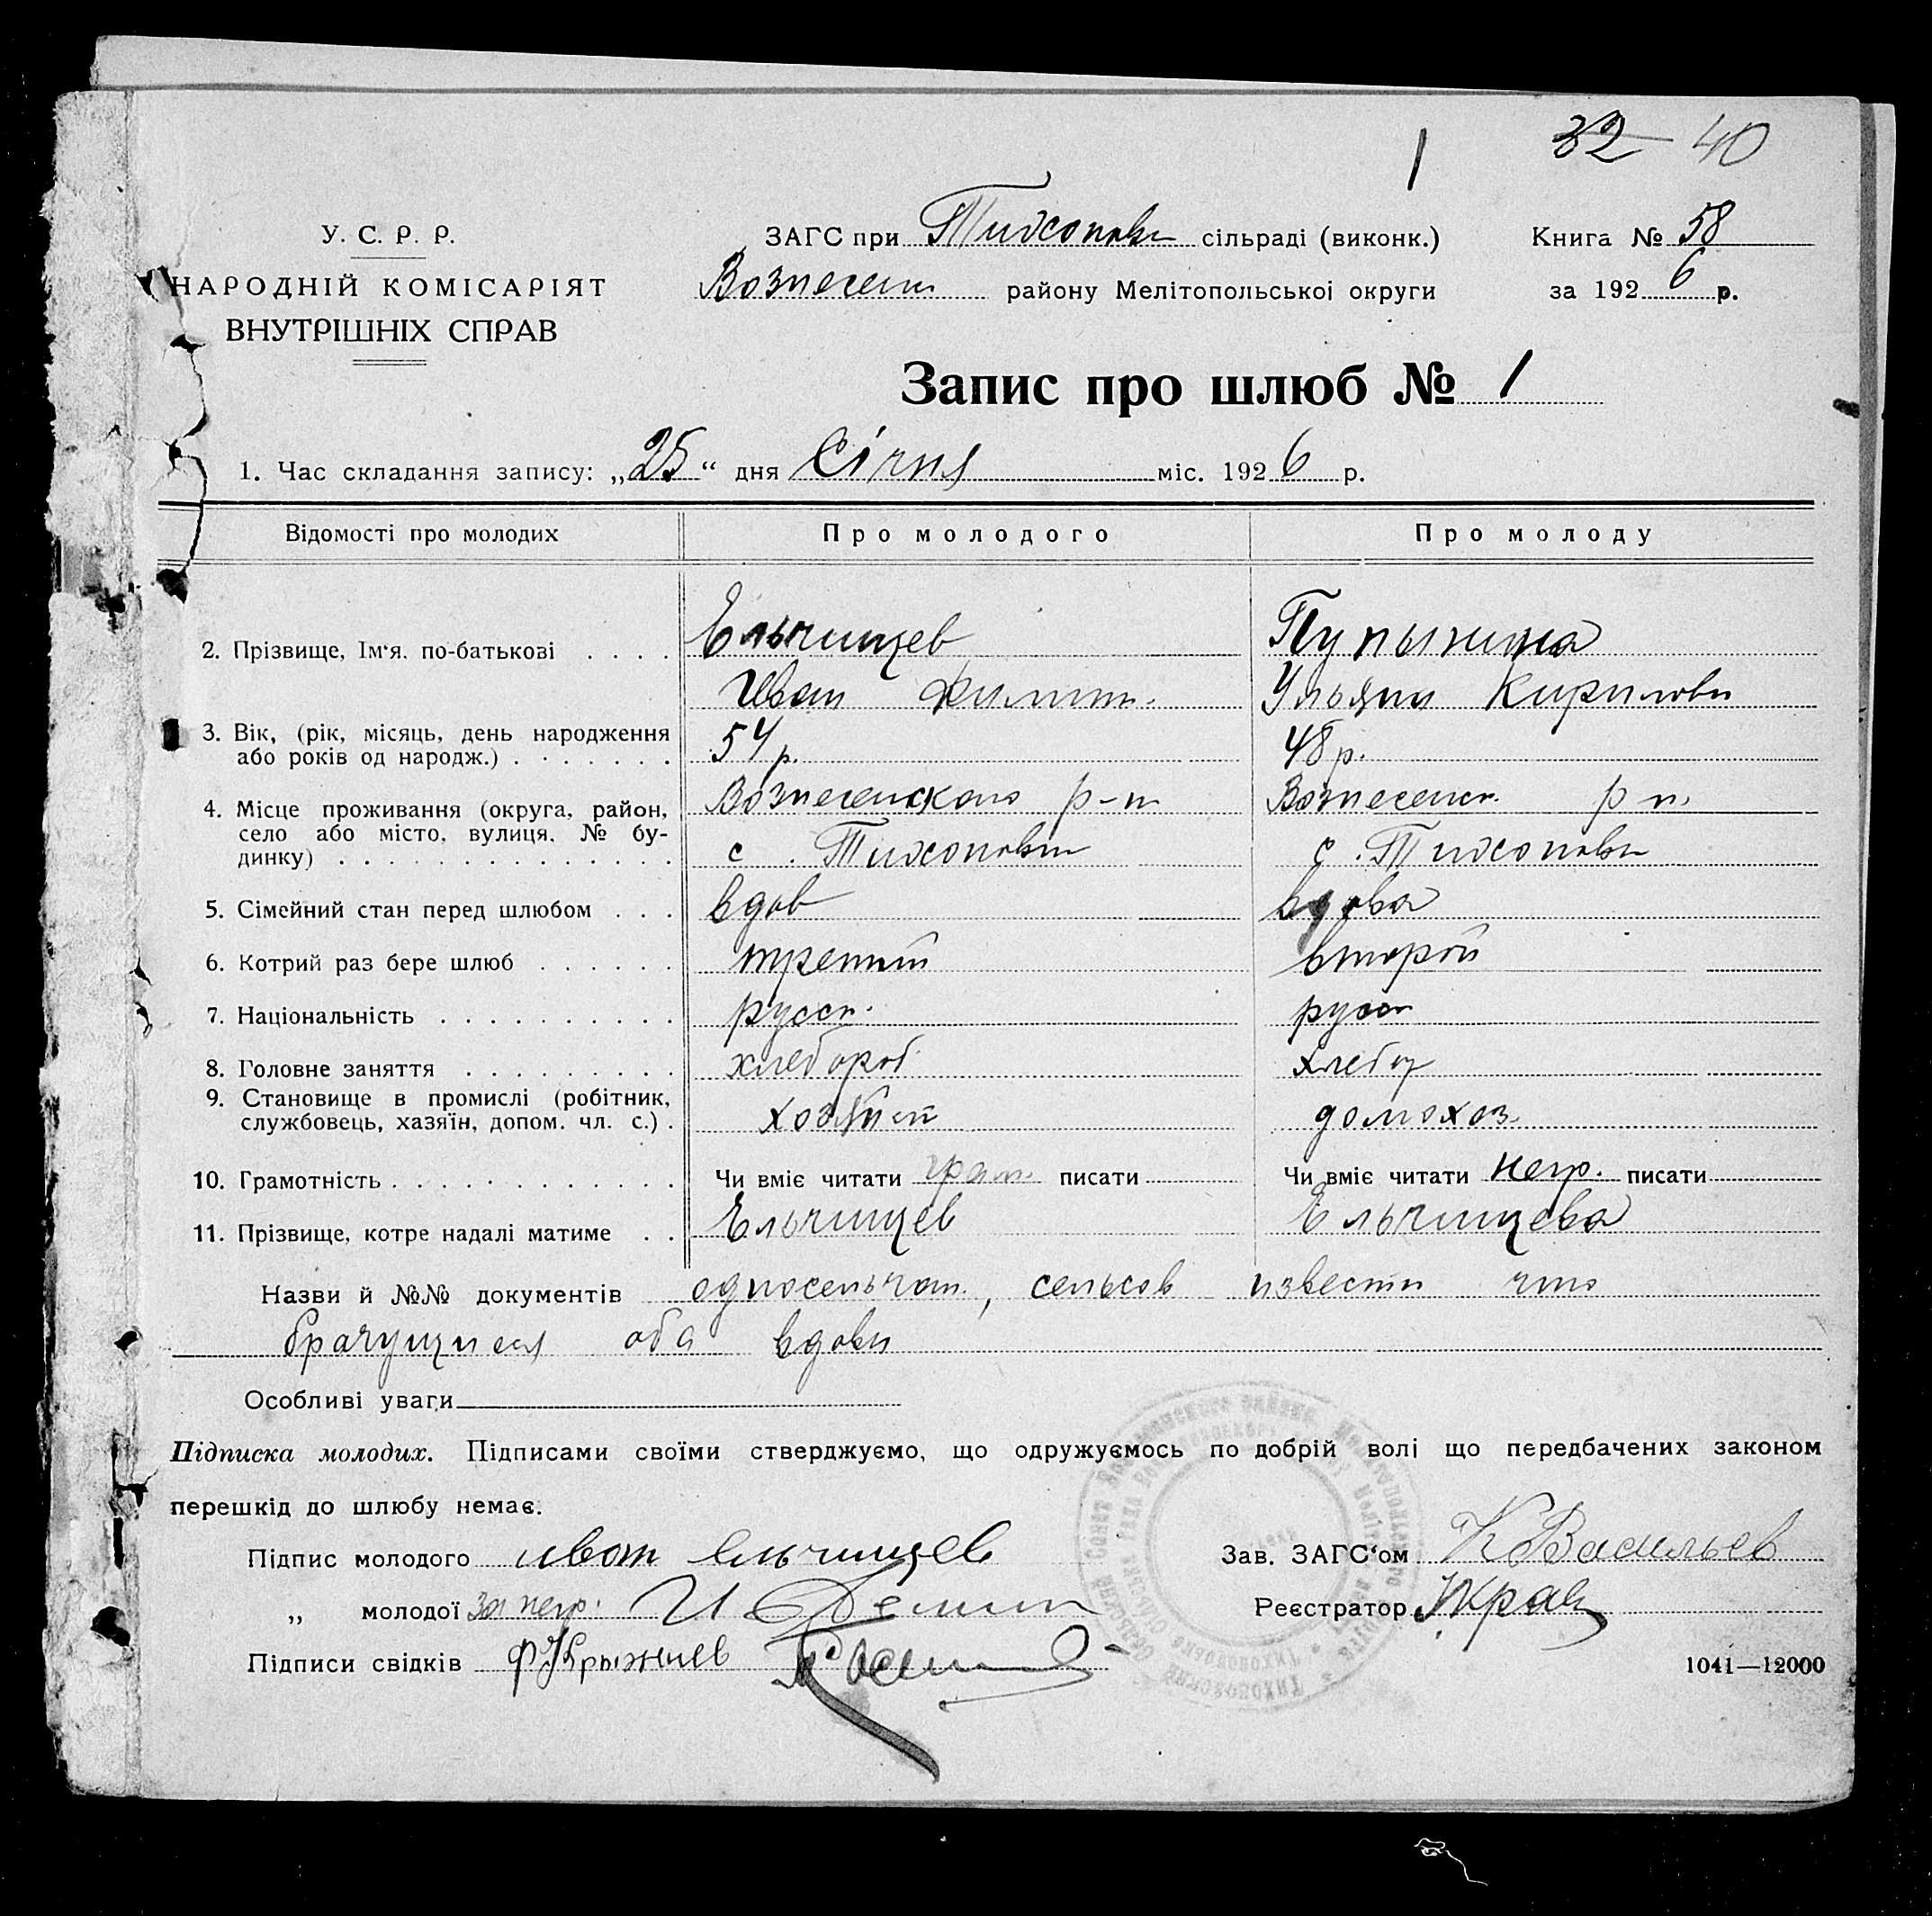 32 40
1
У. С. Р. Р.
НАРОДНІЙ КОМІСАРІЯТ
ВНУТРІШНІХ СПРАВ
ЗАГС при Тихоновк сільраді (виконк.)
Вознесен району Мелітопольської округи
Книга № 58
за 1926 р.
Запис про шлюб № 1
1. Час складання запису: „25“ дня Січня міс. 1926 р.
Відомості про молодих Про молодого Про молоду
2. Прізвище, Ім‘я, по-батькові . . . . Ельчищев Пупынина
Иван Филип. Ульяна Кирилов
3. Вік, (рік, місяць, день народження
або років од народж.) . . . . . . . 54 р. 48 р.
4. Місце проживання (округа, район, Вознесенского р-н Вознесенск. р н.
село або місто, вулиця, № бу-
динку) . . . . . . . . . . . . . . с. Тихоновк с. Тихоновк
5. Сімейний стан перед шлюбом . . . вдов вдова
6. Котрий раз бере шлюб . . . . . . третий второй
7. Національність . . . . . . . . . . русск. русск
8. Головне заняття . . . . . . . . . хлебороб. хлебор
9. Становище в промислі (робітник,
службовець, хазяїн, допом. чл. с.) . хозяин домохоз.
10. Грамотність . . . . . . . . . . . . Чи вміє читати грам. писати Чи вміє читати негр. писати
11. Прізвище, котре надалі матиме . . Ельчищев Ельчищева
Назви й №№ документів односельчан., сельсов извести что
брачущиеся оба вдовы
Особливі уваги
Підписка молодих. Підписами своїми стверджуємо, що одружуємось по добрій волі що передбачених законом
перешкід до шлюбу немає.
Підпис молодого иван ельчищев
Зав. ЗАГС‘ом К Васильев
„ молодої За негр. И Демин
Реєстратор
Підписи свідків
1041—12000